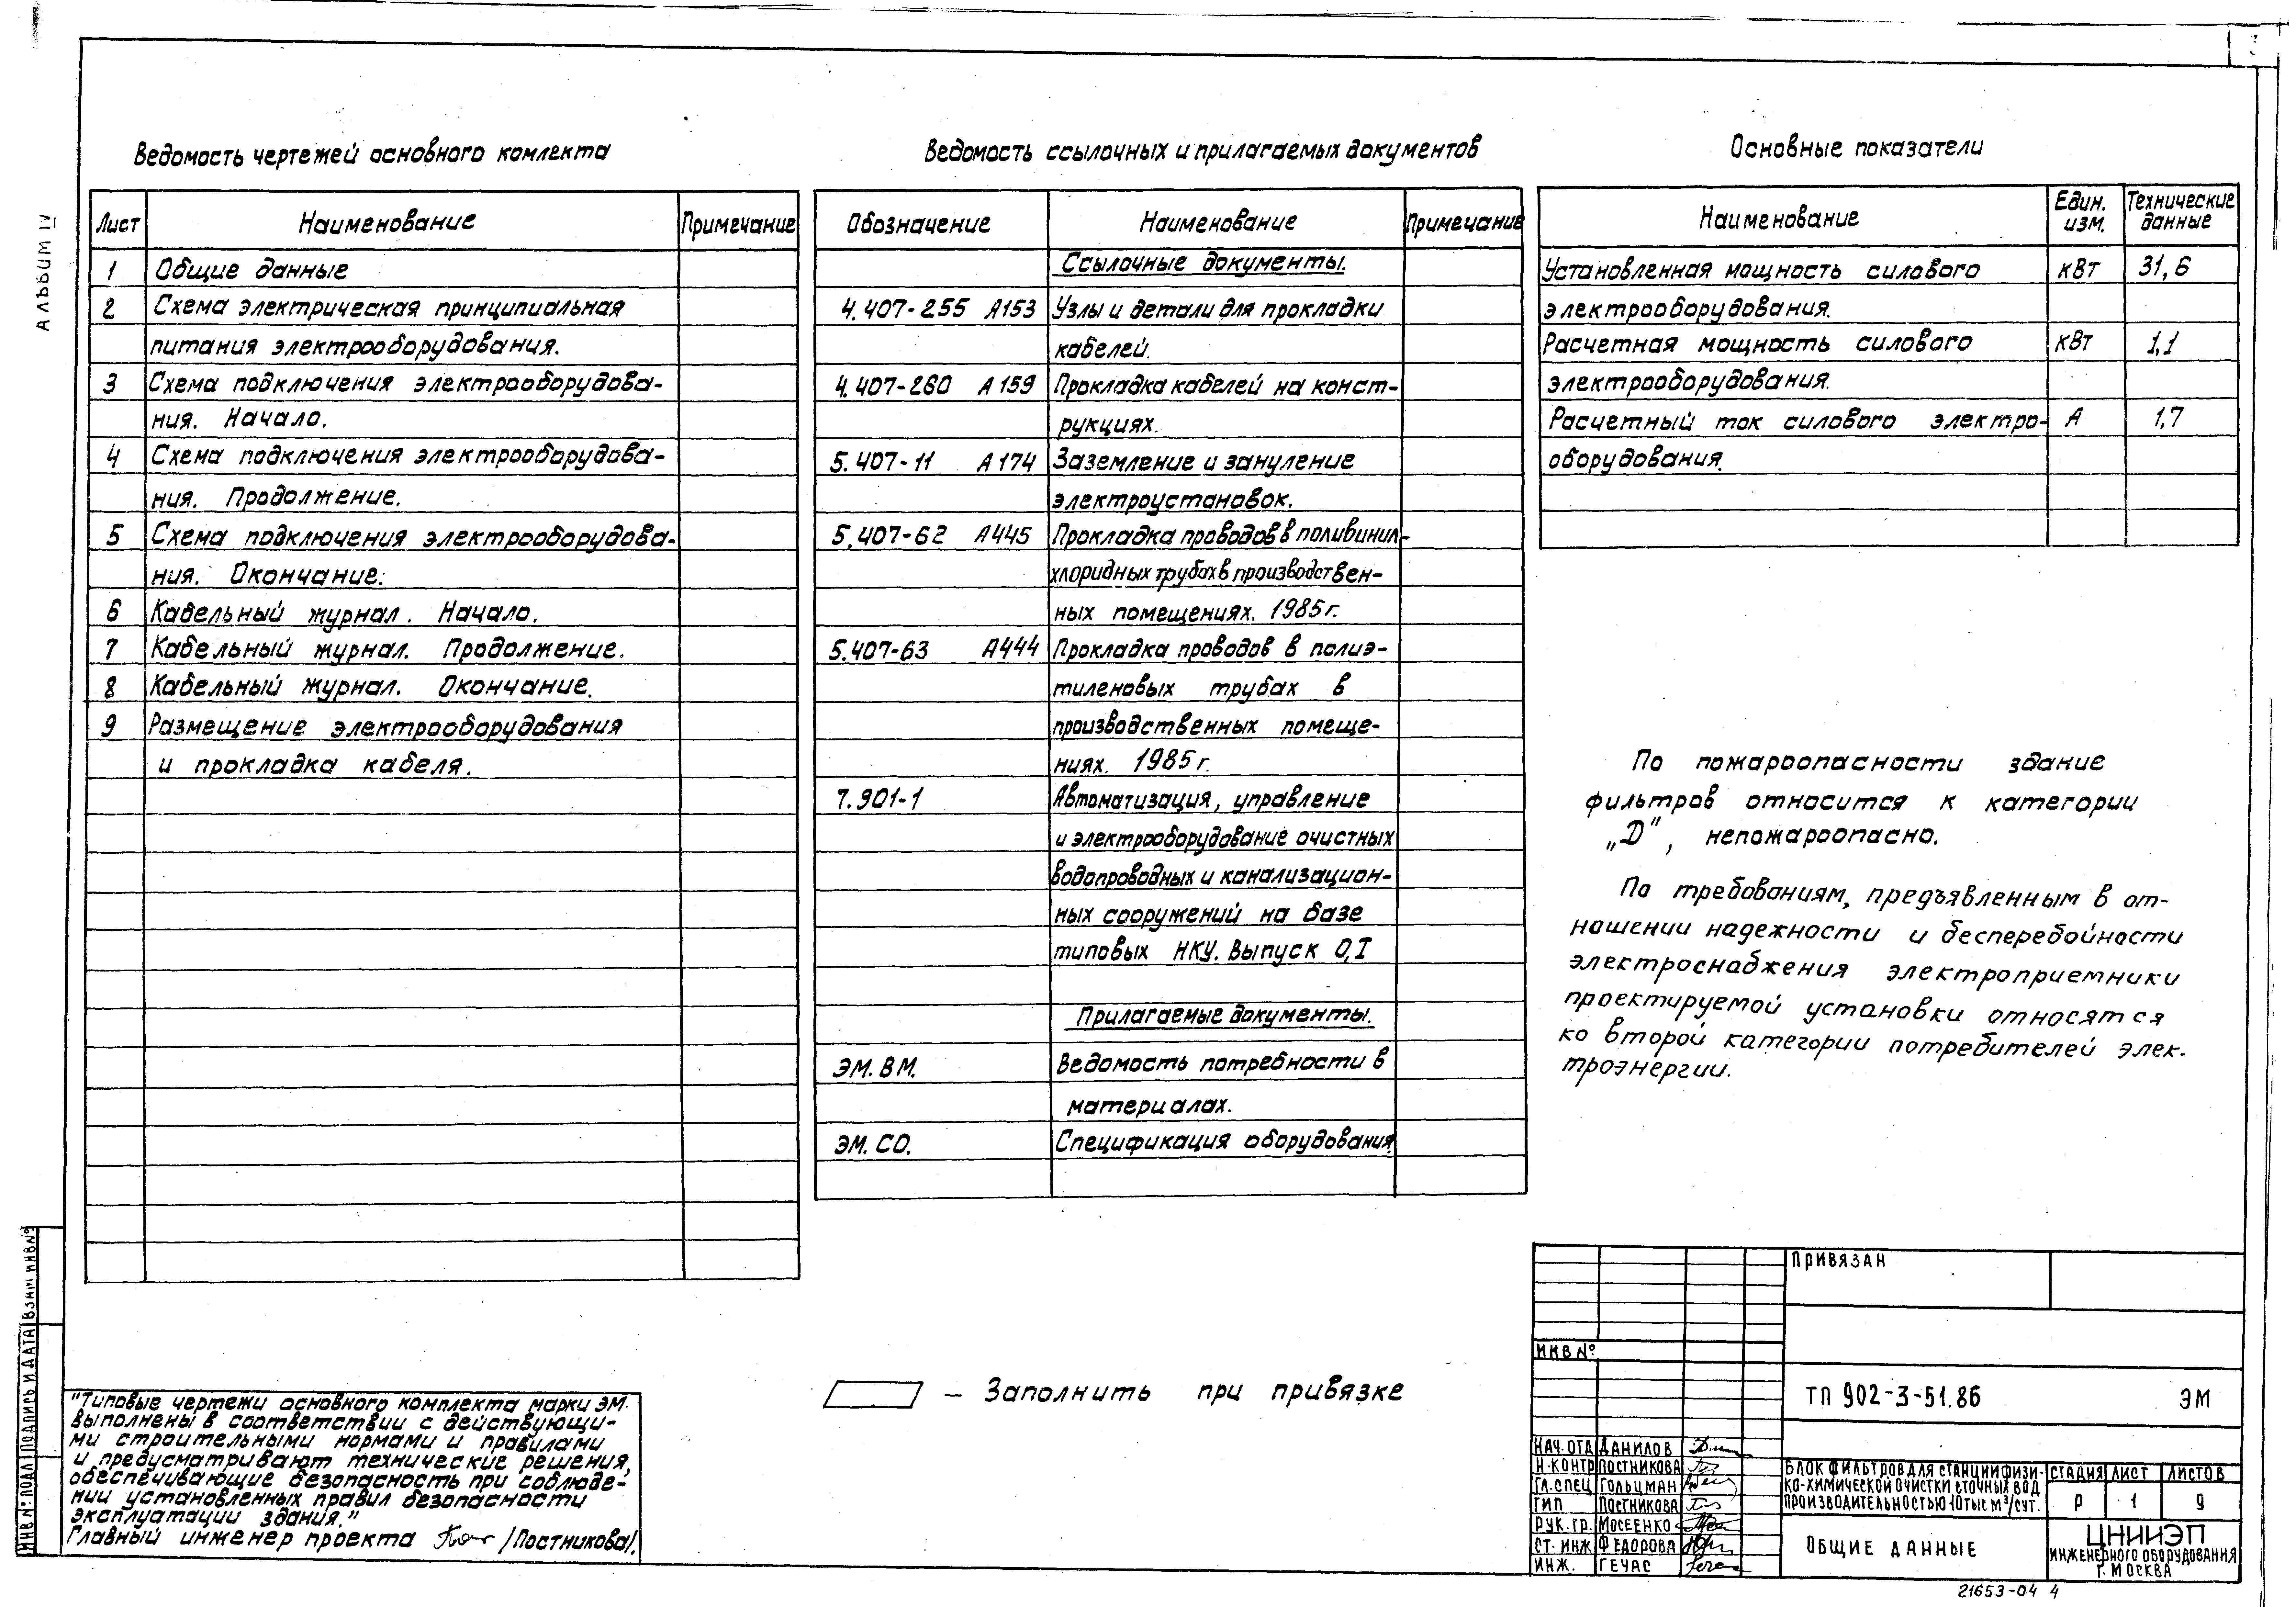 АЛЬБОМ IV
Ведомость чертежей основного комлекта
Лист Наименование Примечание
1 Общие данные
2 Схема электрическая принципиальная
питания электрооборудования.
3 Схема подключения электрооборудова-
ния. Начало.
4 Схема подключения электрооборудова-
ния. Продолжение.
5 Схема подключения электрооборудова-
ния. Окончание.
6 Кабельный журнал. Начало.
7 Кабельный журнал. Продолжение.
8 Кабельный журнал. Окончание.
9 Размещение электрооборудования
и прокладка кабеля.
Ведомость ссылочных и прилагаемых документов
Обозначение Наименование Примечание
Ссылочные документы.
4.407-255 А153 Узлы и детали для прокладки
кабелей.
4.407-260 А159 Прокладка кабелей на конст-
рукциях.
5.407-11 А174 Заземление и зануление
электроустановок.
5.407-62 А445 Прокладка проводов в поливинил-
хлоридных трубах в производствен-
ных помещениях. 1985г.
5.407-63 А444 Прокладка проводов в полиэ-
тиленовых трубах в
производственных помеще-
ниях. 1985г.
7.901-1 Автоматизация, управление
и электрооборудование очистных
водопроводных и канализацион-
ных сооружений на базе
типовых НКУ. Выпуск 0,I
Прилагаемые документы.
ЭМ.ВМ. Ведомость потребности в
материалах.
ЭМ.СО. Спецификация оборудования.
Основные показатели
Наименование Един. изм. Технические данные
Установленная мощность силового кВт 31,6
электрооборудования.
Расчетная мощность силового кВт 1,1
электрооборудования.
Расчетный ток силового электро- А 1,7
оборудования.
По пожароопасности здание
фильтров относится к категории
„Д", непожароопасно.
По требованиям, предъявленным в от-
ношении надежности и бесперебойности
электроснабжения электроприемники
проектируемой установки относятся
ко второй категории потребителей элек-
троэнергии.
— Заполнить при привязке
"Типовые чертежи основного комплекта марки ЭМ
выполнены в соответствии с действующи-
ми строительными нормами и правилами
и предусматривают технические решения,
обеспечивающие безопасность при соблюде-
нии установленных правил безопасности
эксплуатации здания."
Главный инженер проекта /Постникова/.
ИНВ№ПОДЛ ПОДПИСЬ И ДАТА ВЗАМ ИНВ№
ПРИВЯЗАН
ИНВ №
ТП 902-3-51.86 ЭМ
НАЧ.ОТД ДАНИЛОВ
Н.КОНТР ПОСТНИКОВА
ГЛ.СПЕЦ ГОЛЬЦМАН
ГИП ПОСТНИКОВА
РУК.ГР. МОСЕЕНКО
СТ. ИНЖ ФЕДОРОВА
ИНЖ. ГЕЧАС
БЛОК ФИЛЬТРОВ ДЛЯ СТАНЦИИ ФИЗИ-
КО-ХИМИЧЕСКОЙ ОЧИСТКИ СТОЧНЫХ ВОД
ПРОИЗВОДИТЕЛЬНОСТЬЮ 10 ТЫС М³/СУТ.
СТАДИЯ ЛИСТ ЛИСТОВ
Р 1 9
ОБЩИЕ ДАННЫЕ
ЦНИИЭП
ИНЖЕНЕРНОГО ОБОРУДОВАНИЯ
Г. МОСКВА
21653-04 4